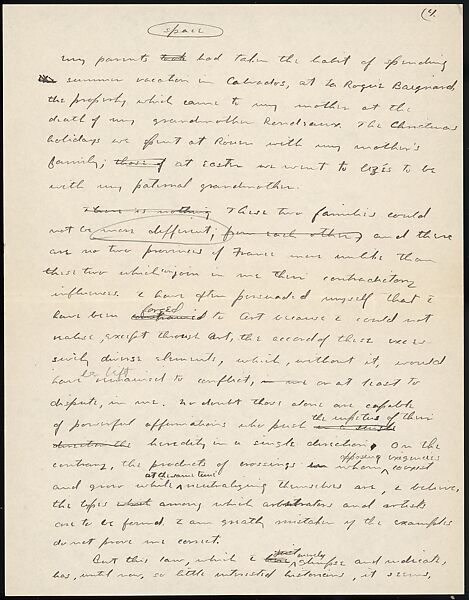 (4.
space
My parents took had taken the habit of spending
the summer vacation in Calvados, at La Roque Baignard,
the property which came to my mother at the
death of my grandmother Rondeaux. The Christmas
holidays we spent at Rouen with my mother's
family; those of at Easter we went to Uzès to be
with my paternal grandmother.
There is nothing These two families could
not be more different; from each other; and there
are no two provinces of France more unlike than
these two which join in me their contradictory
influences. I have often persuaded myself that I
have been forced to Art because I could not
realise, except through Art, the accord of these exces-
sively diverse elements, which, without it, would
be left
have remained to conflict, or at least to
dispute, in me. No doubt those alone are capable
the impetus of their
of powerful affirmations who push in a single
direction the heredity in a single direction. On the
opposing exigencies
contrary, the products of crossings in whom coexist
at the same time
and grow while neutralizing themselves are, I believe,
the types what among which arbitrators and artists
are to be found. I am greatly mistaken if the examples
do not prove me correct.
But this law, which I just merely glimpse and indicate,
has, until now, so little interested historians, it seems,